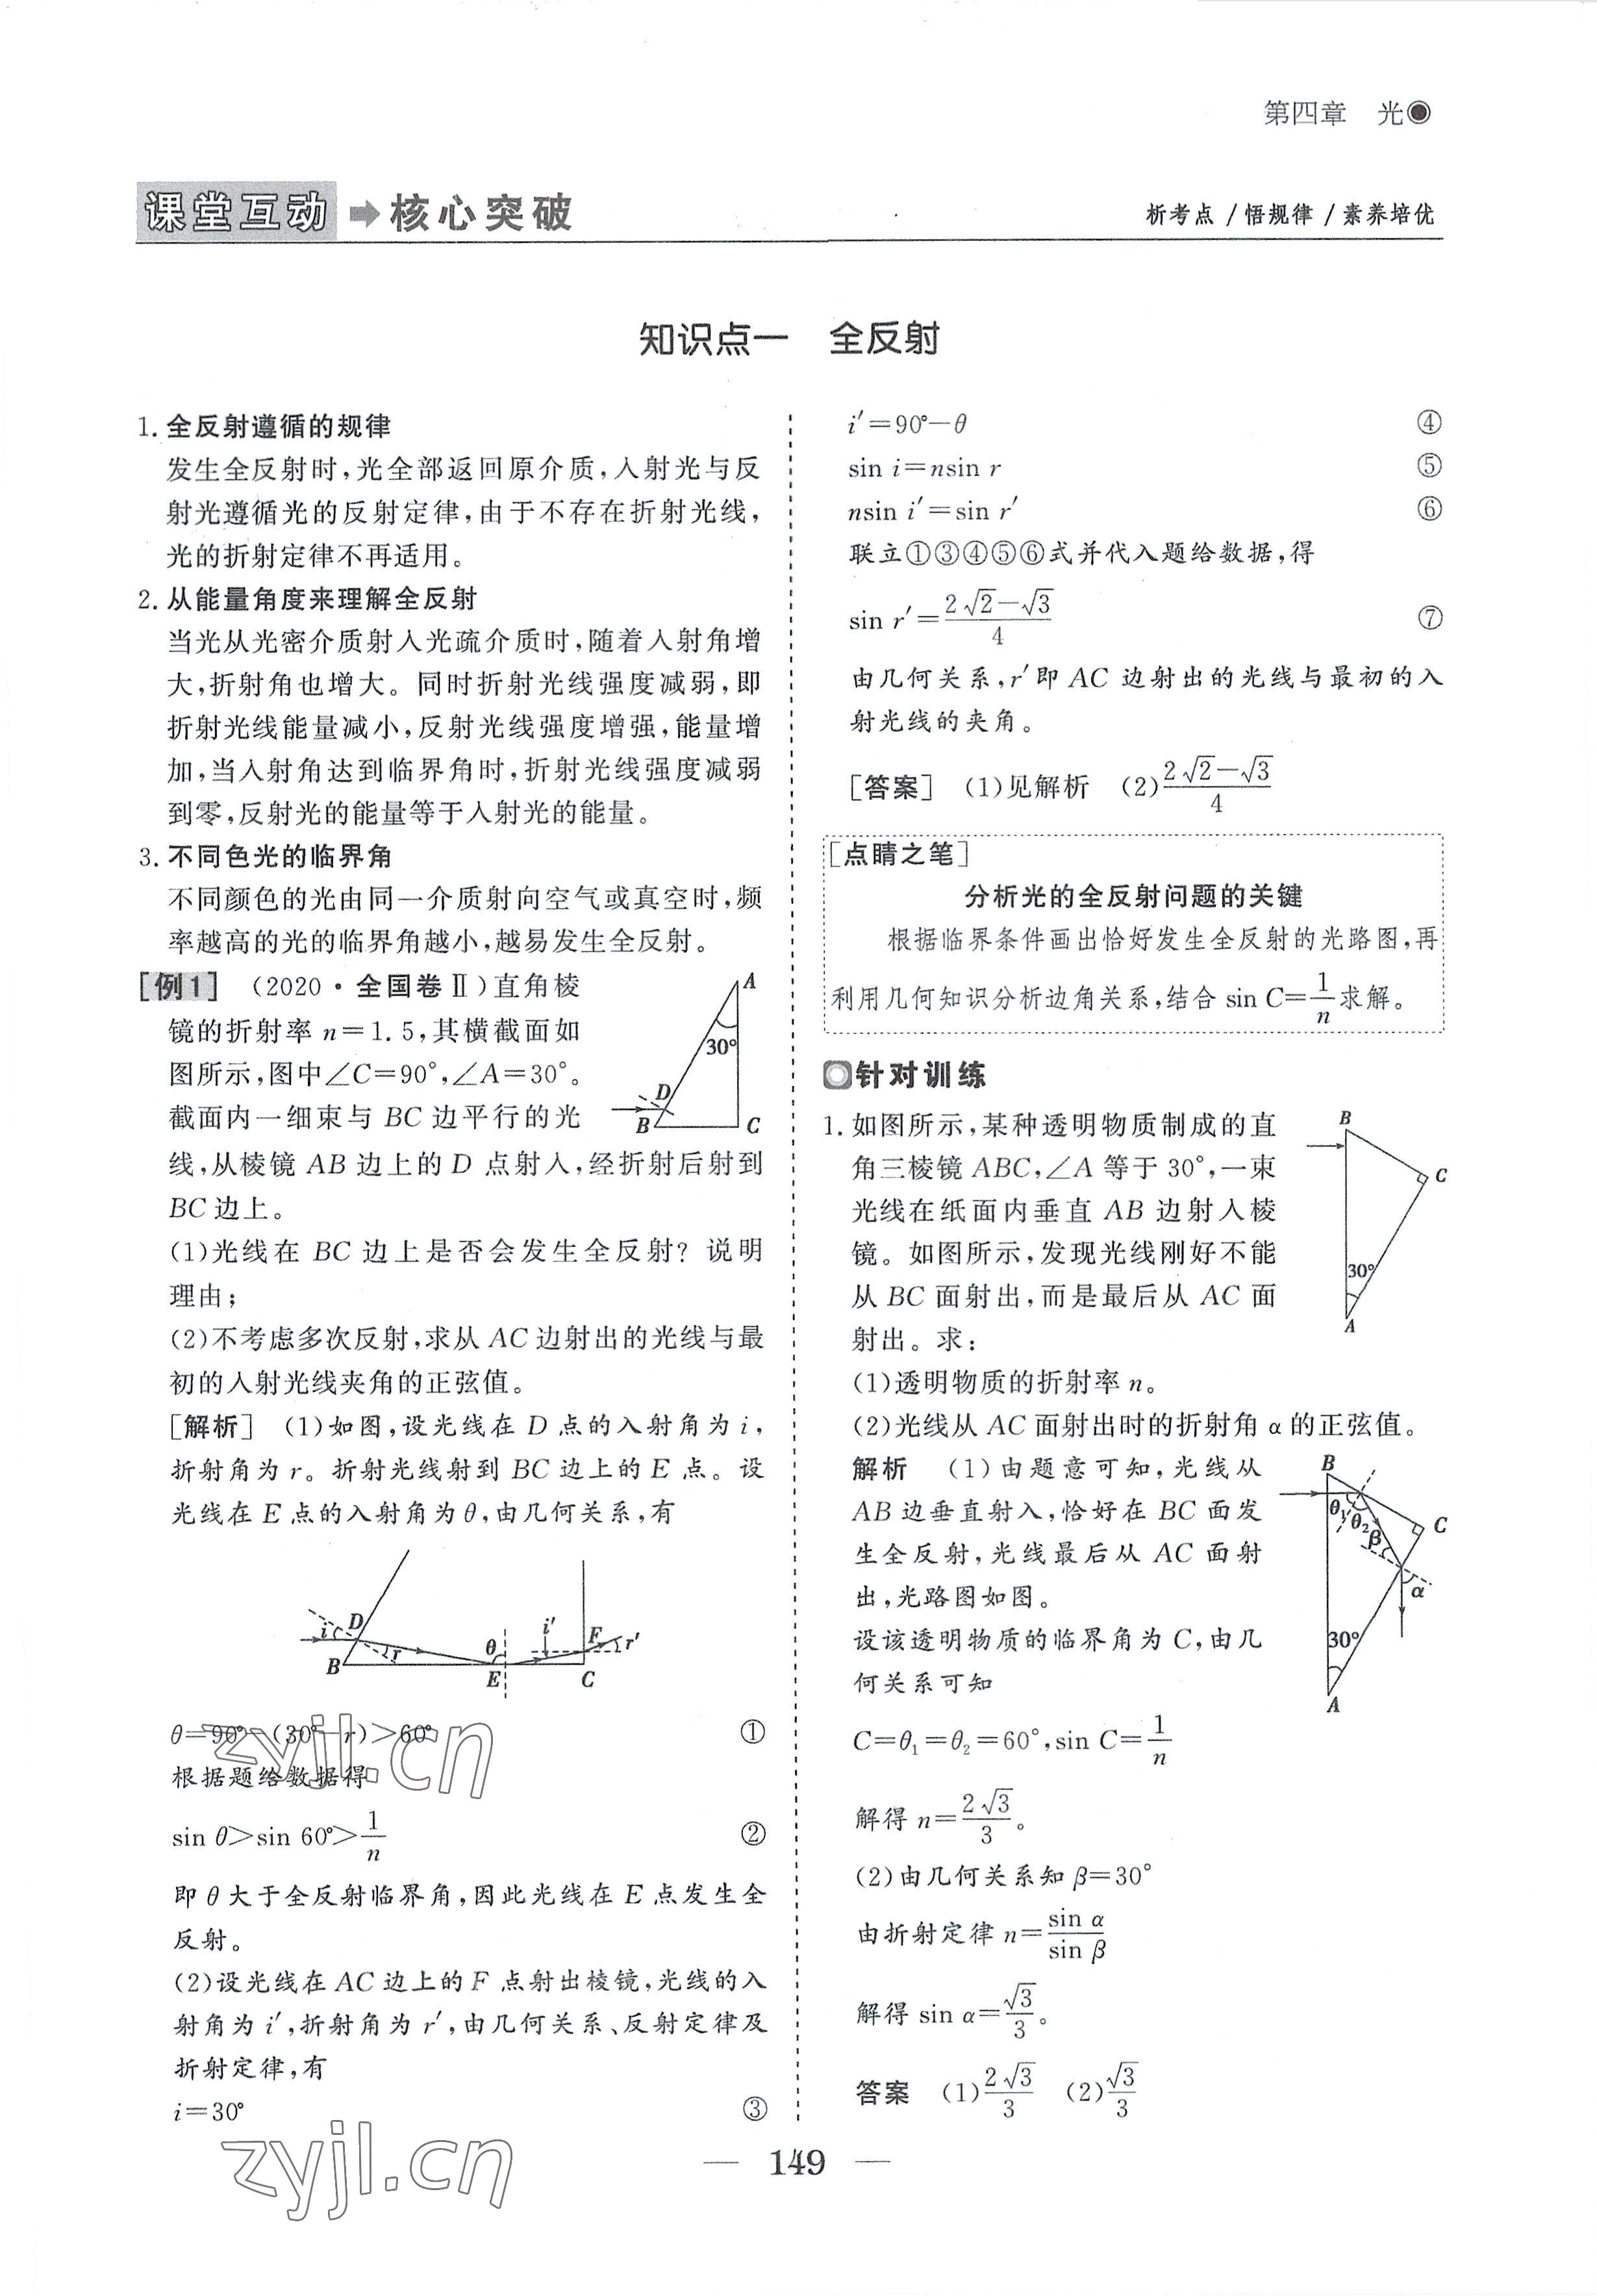 第四章 光
课堂互动 核心突破
析考点 / 悟规律 / 素养培优
知识点一 全反射
1. 全反射遵循的规律
发生全反射时,光全部返回原介质,入射光与反
射光遵循光的反射定律,由于不存在折射光线,
光的折射定律不再适用。
2. 从能量角度来理解全反射
当光从光密介质射入光疏介质时,随着入射角增
大,折射角也增大。同时折射光线强度减弱,即
折射光线能量减小,反射光线强度增强,能量增
加,当入射角达到临界角时,折射光线强度减弱
到零,反射光的能量等于入射光的能量。
3. 不同色光的临界角
不同颜色的光由同一介质射向空气或真空时,频
率越高的光的临界角越小,越易发生全反射。
[例1] (2020·全国卷Ⅱ)直角棱
镜的折射率 n=1.5,其横截面如
图所示,图中∠C=90°,∠A=30°。
截面内一细束与 BC 边平行的光
线,从棱镜 AB 边上的 D 点射入,经折射后射到
BC 边上。
A
30°
D
B
C
(1)光线在 BC 边上是否会发生全反射? 说明
理由;
(2)不考虑多次反射,求从 AC 边射出的光线与最
初的入射光线夹角的正弦值。
[解析] (1)如图,设光线在 D 点的入射角为 i,
折射角为 r。折射光线射到 BC 边上的 E 点。设
光线在 E 点的入射角为 θ,由几何关系,有
i D r B θ E i′ F r′ C
θ=90°-(30°-r)>60° ①
根据题给数据得
sin θ>sin 60°>1/n ②
即 θ 大于全反射临界角,因此光线在 E 点发生全
反射。
(2)设光线在 AC 边上的 F 点射出棱镜,光线的入
射角为 i′,折射角为 r′,由几何关系、反射定律及
折射定律,有
i=30° ③
i′=90°-θ ④
sin i=nsin r ⑤
nsin i′=sin r′ ⑥
联立①③④⑤⑥式并代入题给数据,得
sin r′=(2√2-√3)/4 ⑦
由几何关系,r′即 AC 边射出的光线与最初的入
射光线的夹角。
[答案] (1)见解析 (2)(2√2-√3)/4
[点睛之笔]
分析光的全反射问题的关键
根据临界条件画出恰好发生全反射的光路图,再
利用几何知识分析边角关系,结合 sin C=1/n求解。
针对训练
1. 如图所示,某种透明物质制成的直
角三棱镜 ABC,∠A 等于 30°,一束
光线在纸面内垂直 AB 边射入棱
镜。如图所示,发现光线刚好不能
从 BC 面射出,而是最后从 AC 面
射出。求:
B
C
30°
A
(1)透明物质的折射率 n。
(2)光线从 AC 面射出时的折射角 α 的正弦值。
解析 (1)由题意可知,光线从
AB 边垂直射入,恰好在 BC 面发
生全反射,光线最后从 AC 面射
出,光路图如图。
设该透明物质的临界角为 C,由几
何关系可知
B
θ₁ θ₂ β C
α
30°
A
C=θ₁=θ₂=60°,sin C=1/n
解得 n=2√3/3。
(2)由几何关系知 β=30°
由折射定律 n=sin α/sin β
解得 sin α=√3/3。
答案 (1)2√3/3 (2)√3/3
— 149 —
zyjl.cn
zyjl.cn